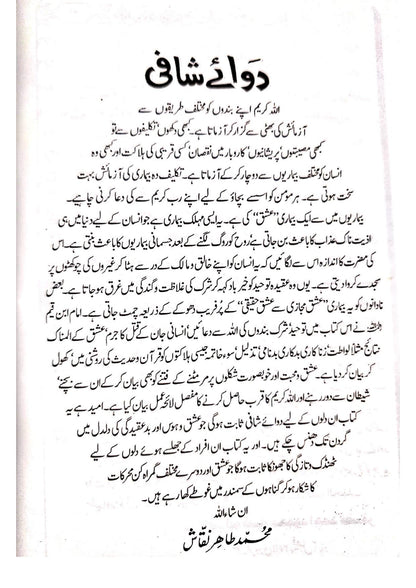 دوائے شافی
اللہ کریم اپنے بندوں کو مختلف طریقوں سے
آزمائش کی بھٹی سے گزار کر آزماتا ہے۔ کبھی دکھوں، تکلیفوں سے تو
کبھی مصیبتوں، پریشانیوں، کاروبار میں نقصان، کسی قریبی کی ہلاکت اور کبھی وہ
انسان کو مختلف بیماریوں سے دوچار کر کے آزماتا ہے۔ تکلیف دہ بیماری کی آزمائش بہت
سخت ہوتی ہے۔ ہر مومن کو اس سے بچاؤ کے لیے اپنے رب کریم سے کی دعا کرنی چاہیے۔
بیماریوں میں سے ایک بیماری ”عشق“ کی ہے۔ یہ ایسی مہلک بیماری ہے جو انسان کے لیے دنیا میں ہی
اذیت ناک عذاب کا باعث بن جاتی ہے، روح کو روگ لگنے کے بعد جسمانی بیماریوں کا باعث بنتی ہے۔ اس
کی مضرت کا اندازہ اس سے لگائیں کہ یہ انسان کو اپنے خالق و مالک کے در سے ہٹا کر غیروں کی چوکھٹوں پر
سجدے کروا دیتی ہے۔ یوں وہ عقیدہ توحید کو خیر باد کہہ کر شرک کی غلاظت و گندگی میں غرق ہو جاتا ہے۔ بعض
نادانوں کو یہ بیماری ”عشق مجازی سے عشق حقیقی“ کے پُر فریب دھوکے کے ذریعہ چمٹ جاتی ہے۔ امام ابن قیم
نے اس کتاب میں توحید، شرک، بندوں کی اللہ سے دعائیں، انسانی جان کے قتل کا جرم، عشق کے المناک
نتائج مثلاً لواطت، زنا کاری، بدکاری، بدنامی، تذلیل، سوء خاتمہ جیسی ہلاکتوں کو قرآن و حدیث کی روشنی میں کھول
کر بیان کر دیا ہے۔ عشق و محبت اور خوبصورت شکلوں پر مر مٹنے کے فتنے کو بھی بیان کر کے ان سے بچنے،
شیطان سے دور رہنے اور اللہ کریم کا قرب حاصل کرنے کا مفصل لائحہ عمل بیان کیا ہے۔ امید ہے یہ
کتاب ان دلوں کے لیے دوائے شافی ثابت ہو گی جو عشق و ہوس اور بدعقیدگی کی دلدل میں
گردن تک دھنس چکے ہیں۔ اور یہ کتاب ان افراد کے جھلسے ہوئے دلوں کے لیے
ٹھنڈک و تازگی کا جھونکا ثابت ہو گا جو عشق اور دوسرے مختلف گمراہ کن محرکات
کا شکار ہو کر گناہوں کے سمندر میں غوطے کھا رہے ہیں۔
ان شاء اللہ
محمد طاہر نقاش